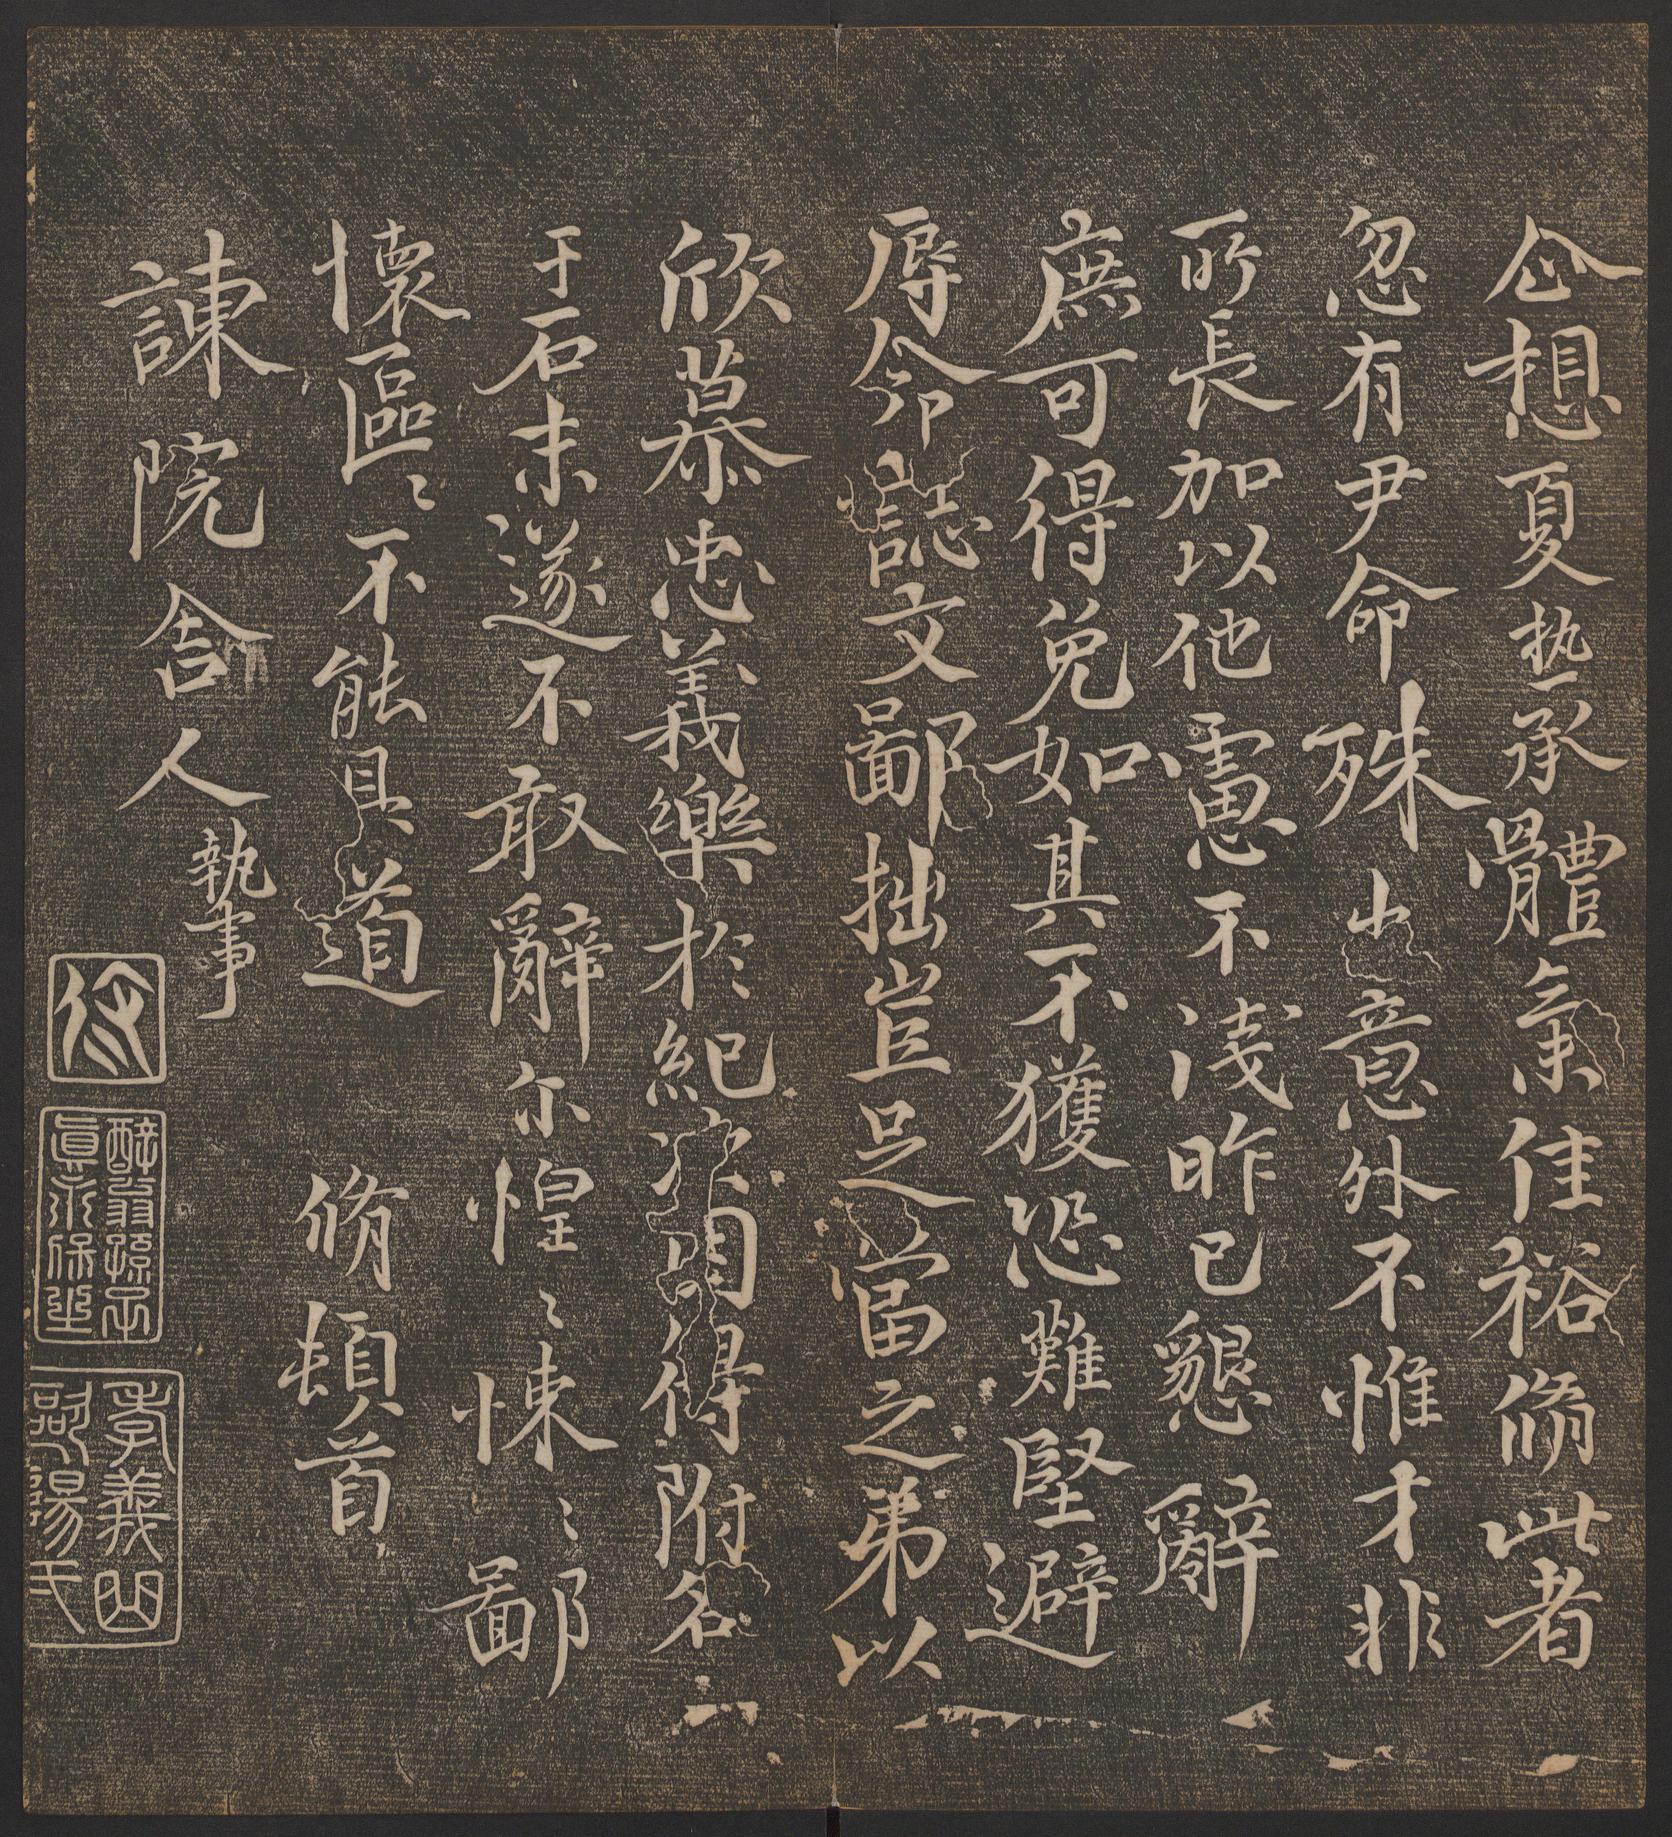 企想夏热承體氣佳裕脩此者
忽有尹命殊出意外不惟才非
所長加以他慮不淺昨已懇辭
庶可得免如其不獲恐難堅避
辱命誌文鄙拙豈足當之弟以
欣慕忠義樂於紀次因得附名
于石未遂不敢辭尒惶〻悚〻鄙
懷區〻不能具道　脩頓首
諫院舍人執事
醉翁孫子